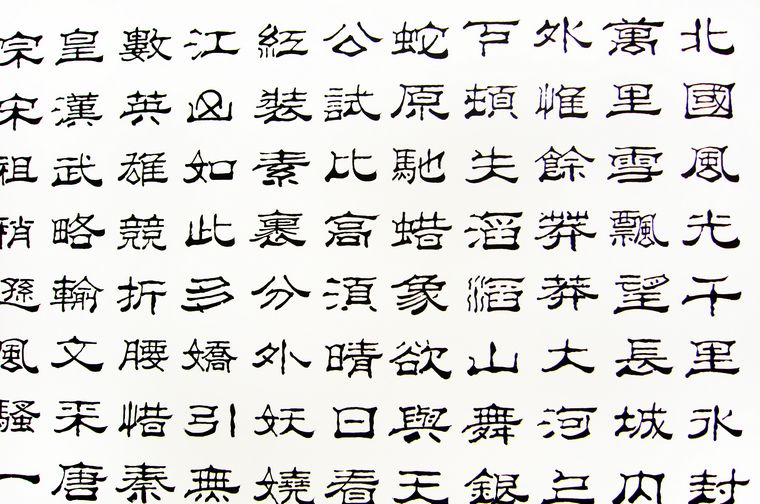 北國風光千里冰封
萬里雪飄望長城内
外惟餘莽莽大河上
下頓失滔滔山舞銀
蛇原馳蜡象欲與天
公試比高須晴日看
紅裝素裹分外妖嬈
江山如此多嬌引無
數英雄競折腰惜秦
皇漢武略輸文采唐
宗宋祖稍遜風騷一